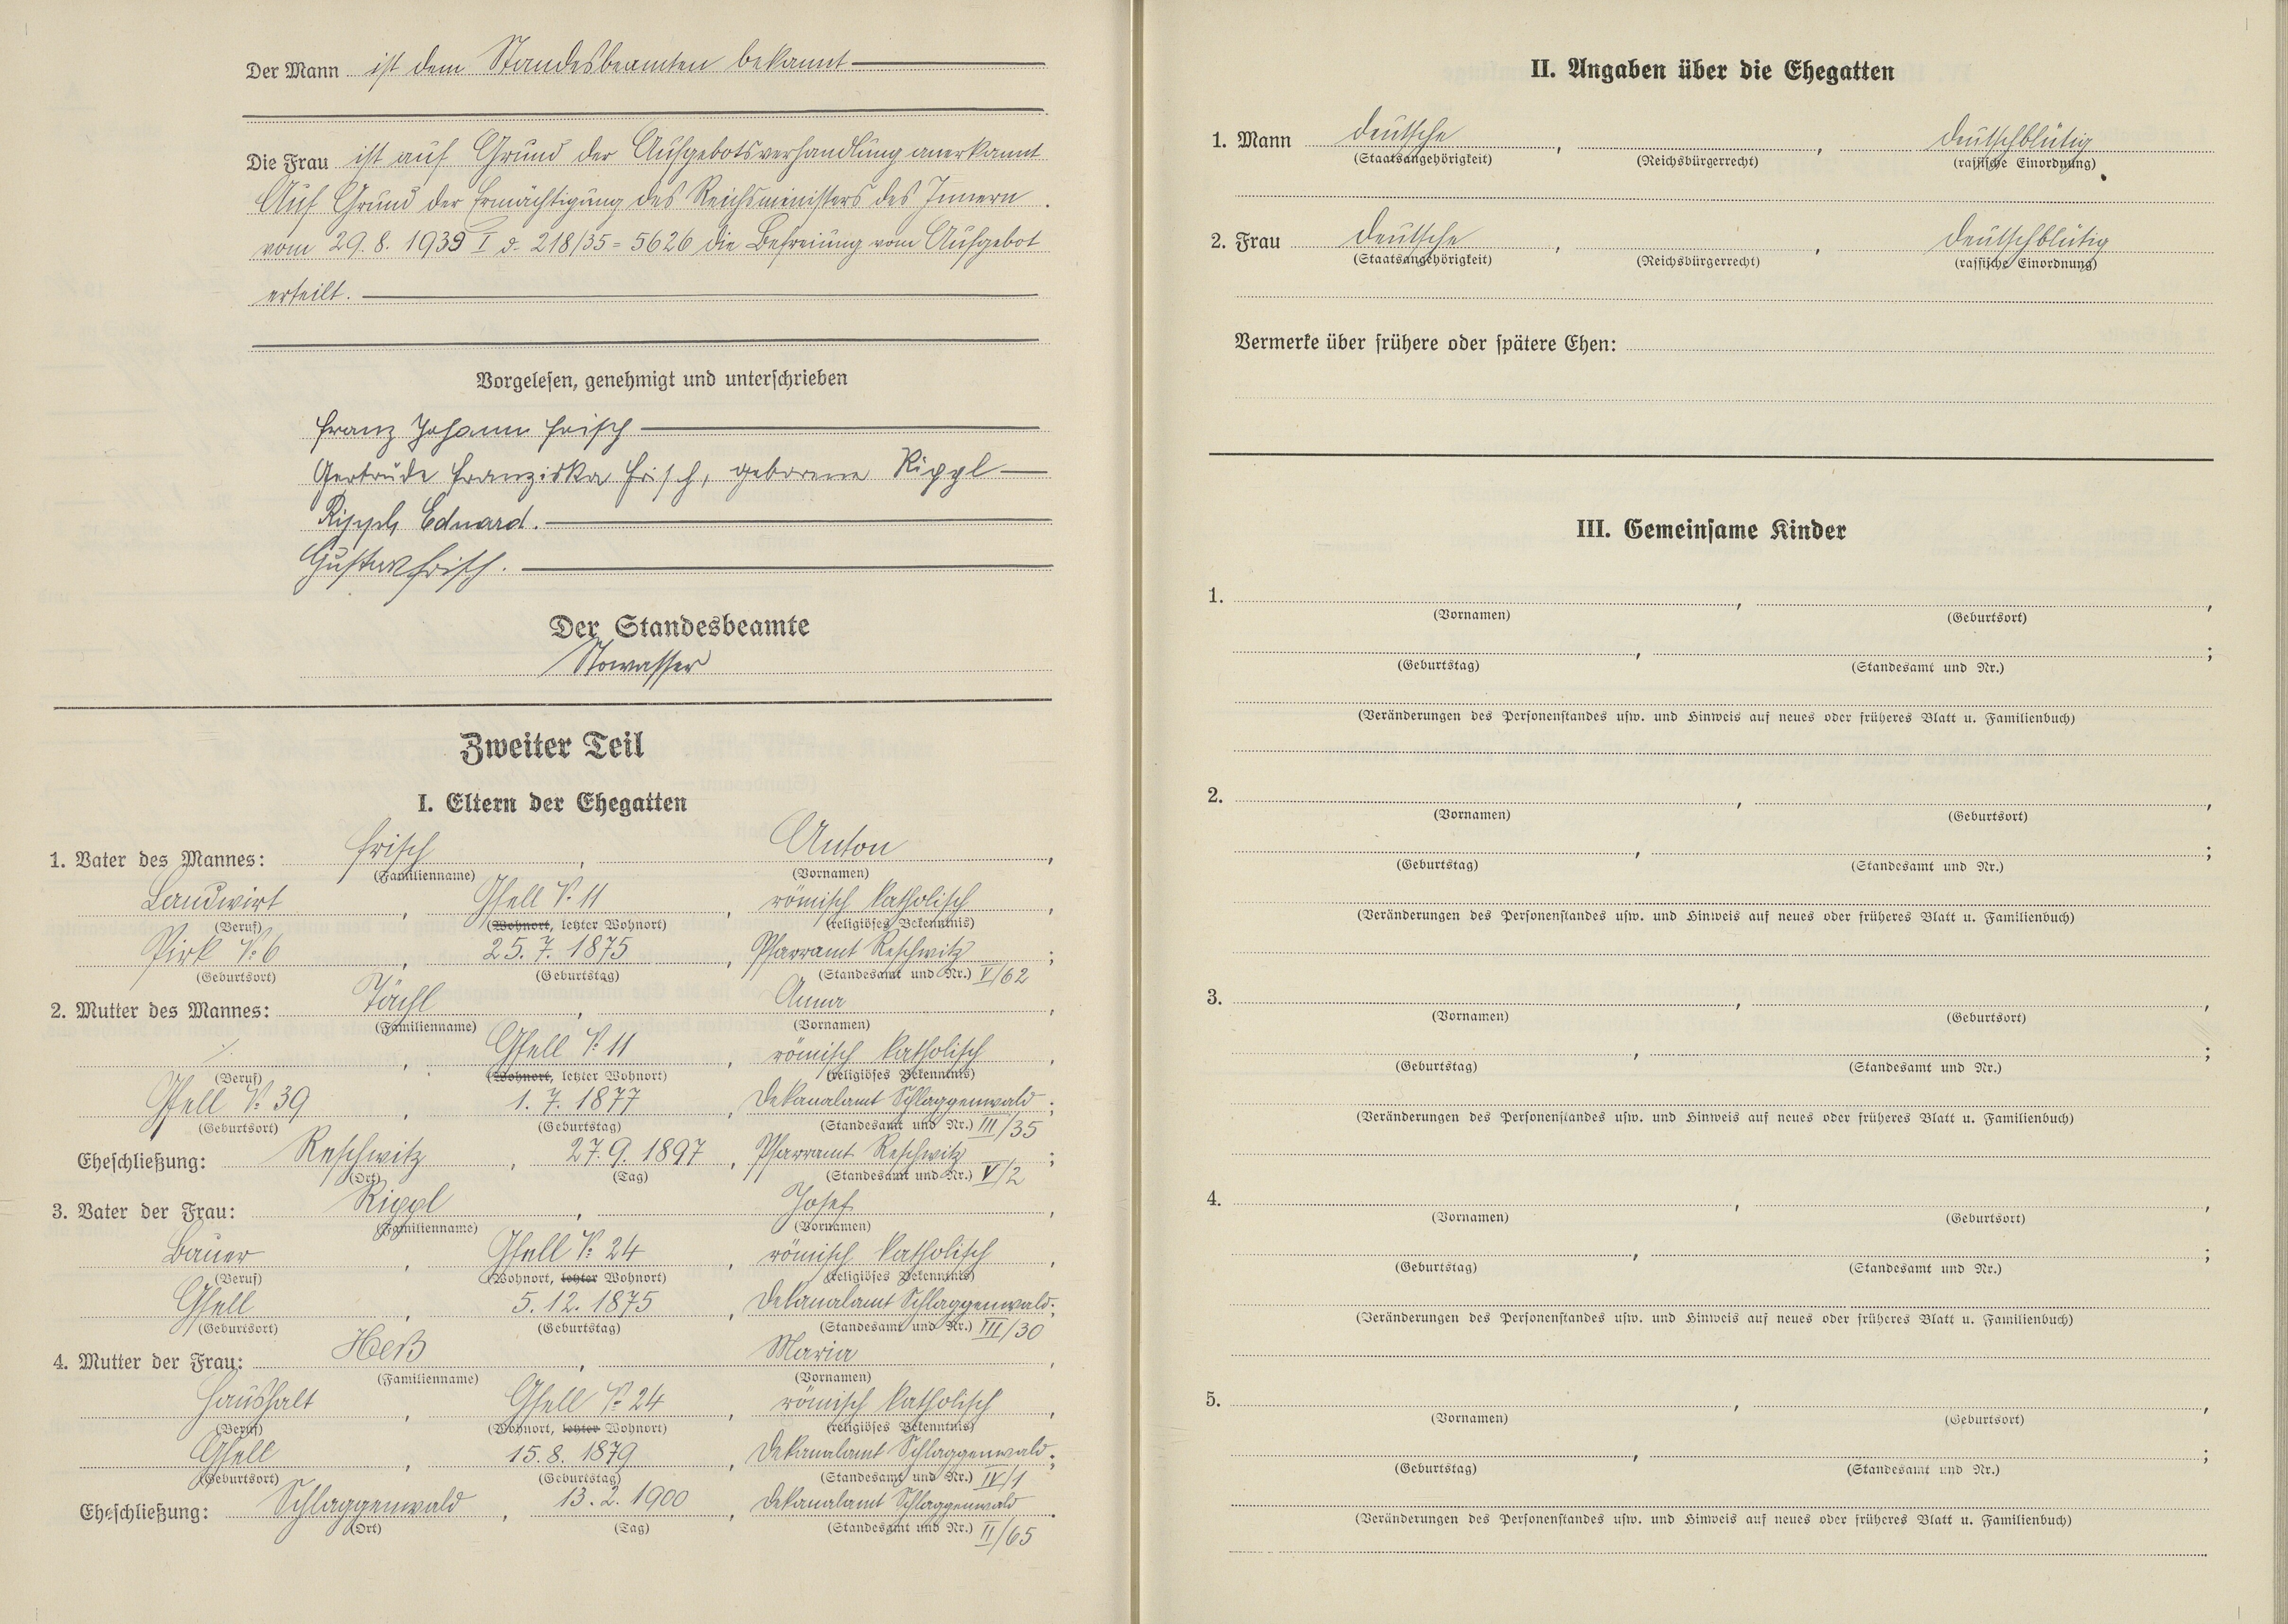 Der Mann ist dem Standesbeamten bekannt
Die Frau ist auf Grund der Aufgebotsverhandlung anerkannt
Auf Grund der Ermächtigung des Reichsministers des Innern
vom 29.8.1939 I d- 218/35=5626 die Befreiung vom Aufgebot
erteilt.
Vorgelesen, genehmigt und unterschrieben
Franz Johann Frisch
Gertrude Franziska Frisch, geborene Rippl
Rippl, Eduard.
Gustav Frisch.
Der Standesbeamte
Stowasser
Zweiter Teil
I. Eltern der Ehegatten
1. Vater des Mannes: Frisch, Anton,
(Familienname) (Vornamen)
Landwirt, Gfell N: 11, römisch katholisch,
(Beruf) (Wohnort, letzter Wohnort) (religiöses Bekenntnis)
Pirk N: 6, 25.7.1875, Pfarramt Reschwitz;
(Geburtsort) (Geburtstag) (Standesamt und Nr.) V/62
2. Mutter des Mannes: Tächl, Anna,
(Familienname) (Vornamen)
Gfell N: 11, römisch katholisch,
(Beruf) (Wohnort, letzter Wohnort) (religiöses Bekenntnis)
Gfell N: 39, 1.7.1877, Dekanalamt Schlaggenwald;
(Geburtsort) (Geburtstag) (Standesamt und Nr.) III/35
Eheschließung: Reschwitz, 27.9.1897, Pfarramt Reschwitz;
(Ort) (Tag) (Standesamt und Nr.) V/2
3. Vater der Frau: Rippl, Josef,
(Familienname) (Vornamen)
Bauer, Gfell N: 24, römisch katholisch,
(Beruf) (Wohnort, letzter Wohnort) (religiöses Bekenntnis)
Gfell, 5.12.1875, Dekanalamt Schlaggenwald;
(Geburtsort) (Geburtstag) (Standesamt und Nr.) III/30
4. Mutter der Frau: Heß, Maria,
(Familienname) (Vornamen)
Haushalt, Gfell N: 24, römisch katholisch,
(Beruf) (Wohnort, letzter Wohnort) (religiöses Bekenntnis)
Gfell, 15.8.1879, Dekanalamt Schlaggenwald;
(Geburtsort) (Geburtstag) (Standesamt und Nr.) IV/1
Eheschließung: Schlaggenwald, 13.2.1900, Dekanalamt Schlaggenwald.
(Ort) (Tag) (Standesamt und Nr.) II/65
II. Angaben über die Ehegatten
1. Mann deutsche, , deutschblütig
(Staatsangehörigkeit) (Reichsbürgerrecht) (rassische Einordnung)
2. Frau deutsche, , deutschblütig
(Staatsangehörigkeit) (Reichsbürgerrecht) (rassische Einordnung)
Vermerke über frühere oder spätere Ehen:
III. Gemeinsame Kinder
1. , ,
(Vornamen) (Geburtsort)
, ;
(Geburtstag) (Standesamt und Nr.)
(Veränderungen des Personenstandes usw. und Hinweis auf neues oder früheres Blatt u. Familienbuch)
2. , ,
(Vornamen) (Geburtsort)
, ;
(Geburtstag) (Standesamt und Nr.)
(Veränderungen des Personenstandes usw. und Hinweis auf neues oder früheres Blatt u. Familienbuch)
3. , ,
(Vornamen) (Geburtsort)
, ;
(Geburtstag) (Standesamt und Nr.)
(Veränderungen des Personenstandes usw. und Hinweis auf neues oder früheres Blatt u. Familienbuch)
4. , ,
(Vornamen) (Geburtsort)
, ;
(Geburtstag) (Standesamt und Nr.)
(Veränderungen des Personenstandes usw. und Hinweis auf neues oder früheres Blatt u. Familienbuch)
5. , ,
(Vornamen) (Geburtsort)
, ;
(Geburtstag) (Standesamt und Nr.)
(Veränderungen des Personenstandes usw. und Hinweis auf neues oder früheres Blatt u. Familienbuch)